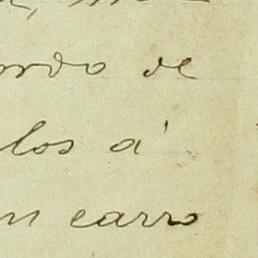 ordo de
los á
um carro